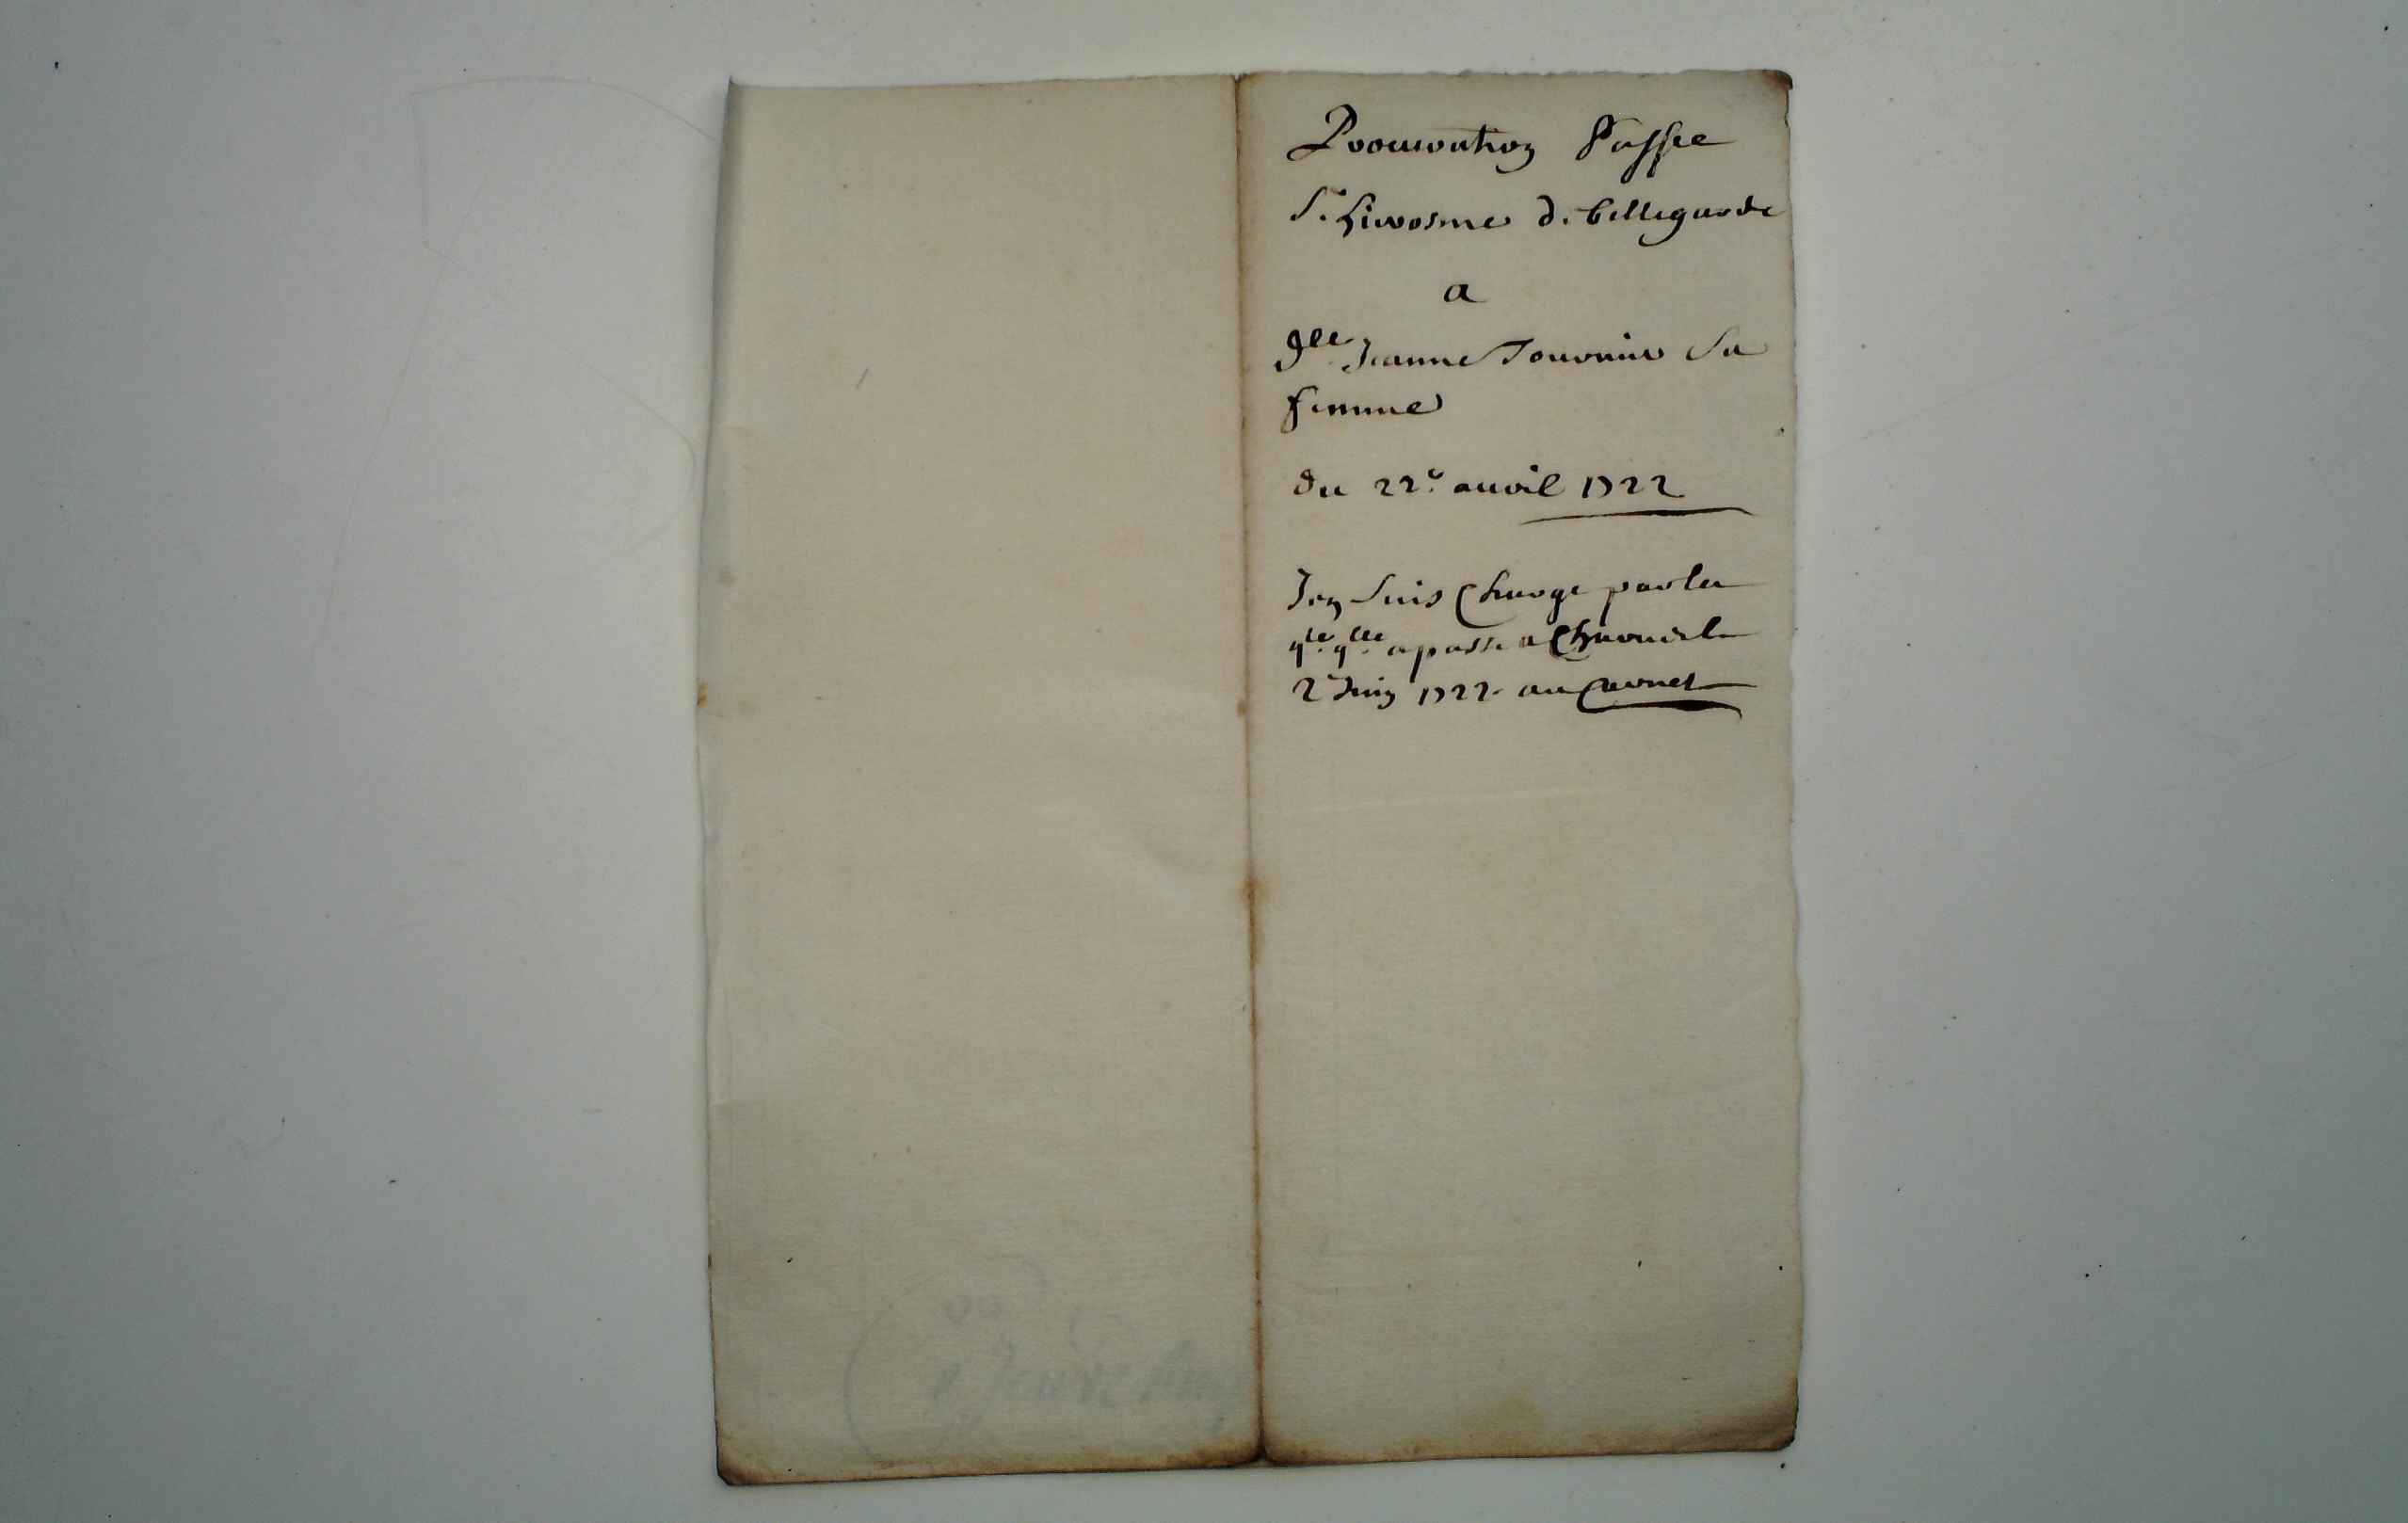 Procuration Passee
Sr. hierosme de bellegarde
a
dlle Jeanne Tournier Sa
femme
du 22e. auril 1722
Jen suis Charge par la
qle. qlle a passe a
2e Juin 1722 au Carnet